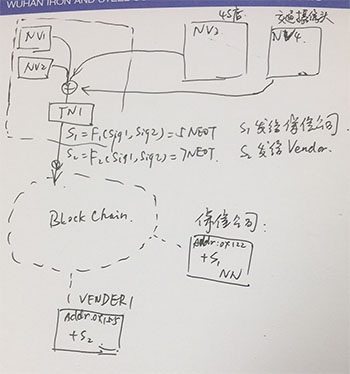 WUHAN IRON AND STEEL CO
NV1
NV2
4S店
NV3
交通摄像头
NV4
TN1
S1 = F1(Sig1, Sig2) = 5NEOT
S1 发给保险公司
S2 = F2(Sig1, Sig2) = 7NEOT
S2 发给 Vendor.
Block Chain.
保险公司:
Addr:0x122
+ S1
NN
VENDER1
Addr:0x155
+ S2